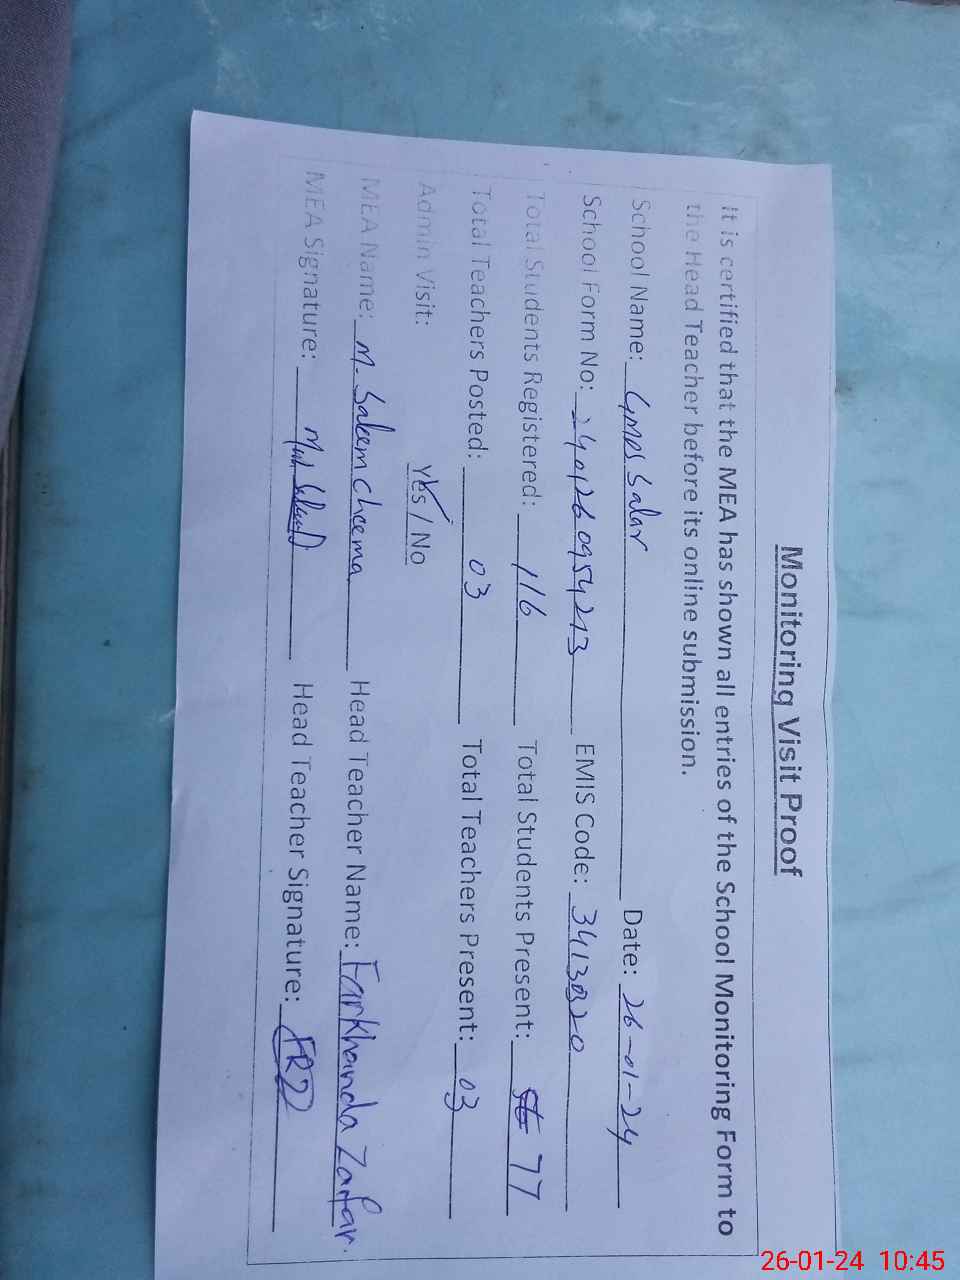 Monitoring Visit Proof
It is certified that the MEA has shown all entries of the School Monitoring Form to
the Head Teacher before its online submission.
School Name: GMPS Salar Date: 26-01-24
School Form No: 2401260954213 EMIS Code: 34130320
Total Students Registered: 116 Total Students Present: 77
Total Teachers Posted: 03 Total Teachers Present: 03
Admin Visit: Yes / No
MEA Name: M. Saleem Cheema Head Teacher Name: Farkhanda Zafar.
MEA Signature: Head Teacher Signature:
26-01-24 10:45